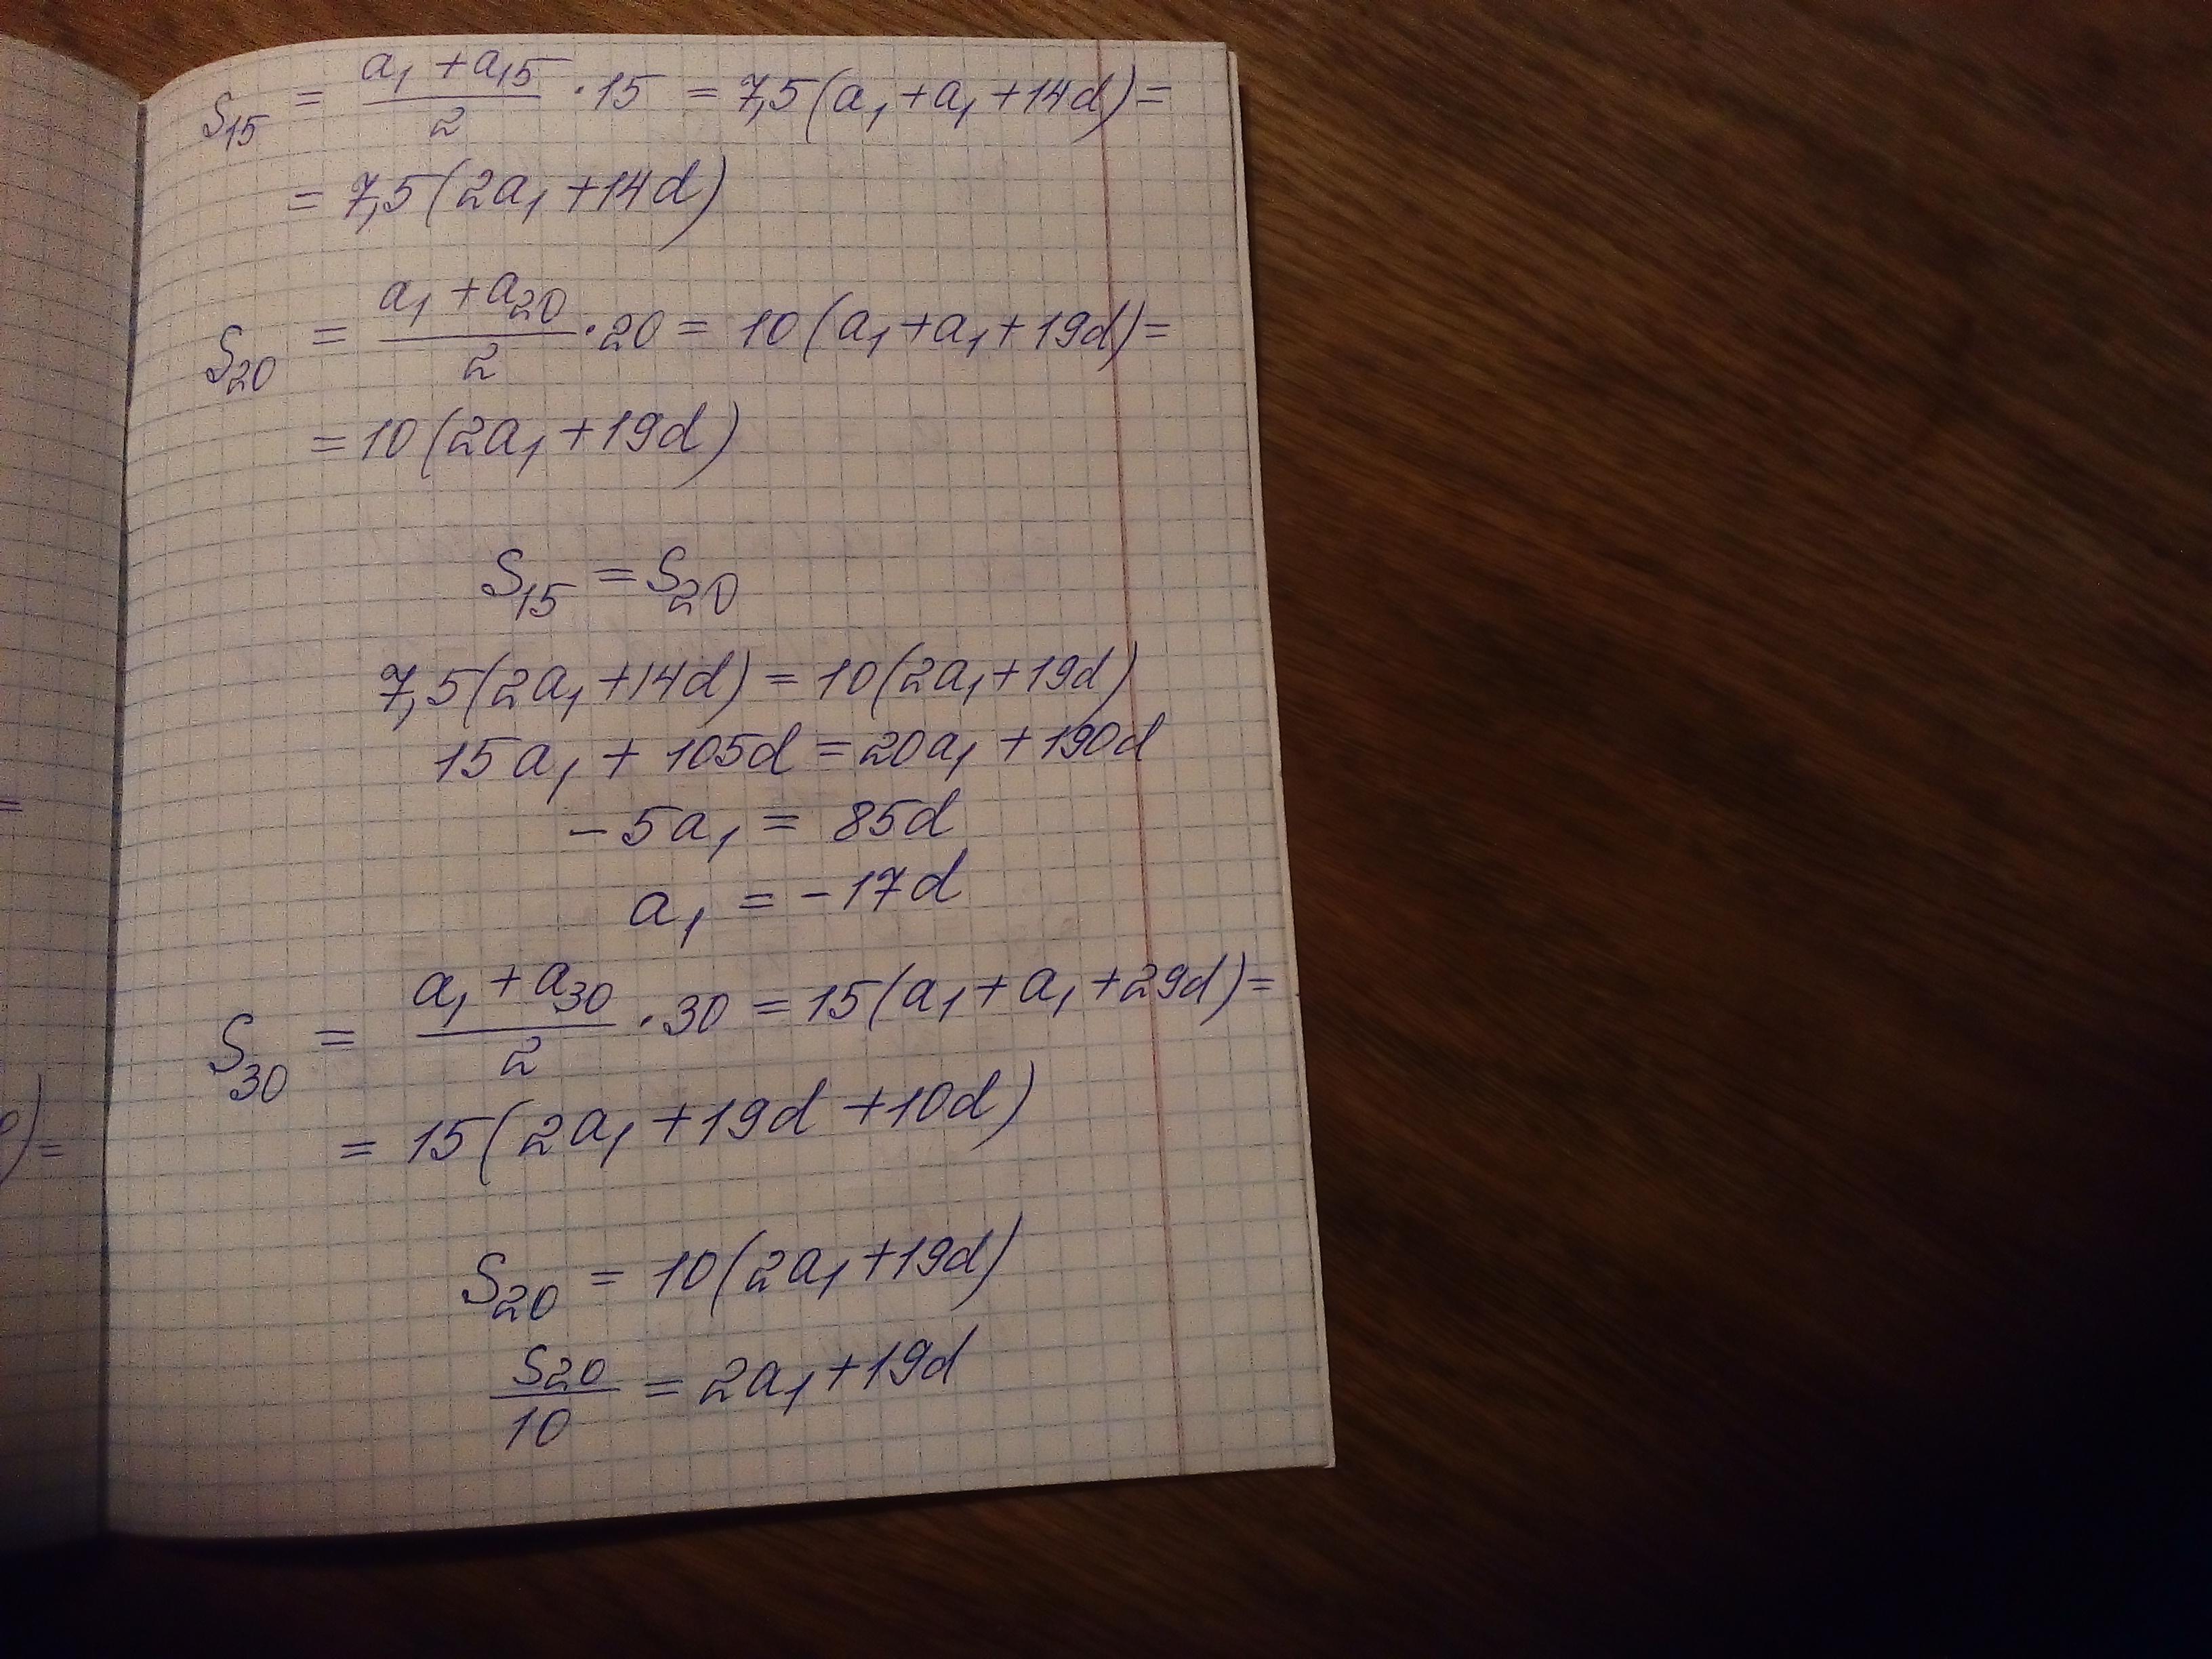 =
)=
S₁₅ = (a₁ + a₁₅)/2 · 15 = 7,5(a₁ + a₁ + 14d) =
= 7,5(2a₁ + 14d)
S₂₀ = (a₁ + a₂₀)/2 · 20 = 10(a₁ + a₁ + 19d) =
= 10(2a₁ + 19d)
S₁₅ = S₂₀
7,5(2a₁ + 14d) = 10(2a₁ + 19d)
15a₁ + 105d = 20a₁ + 190d
- 5a₁ = 85d
a₁ = -17d
S₃₀ = (a₁ + a₃₀)/2 · 30 = 15(a₁ + a₁ + 29d) =
= 15(2a₁ + 19d + 10d)
S₂₀ = 10(2a₁ + 19d)
S₂₀/10 = 2a₁ + 19d